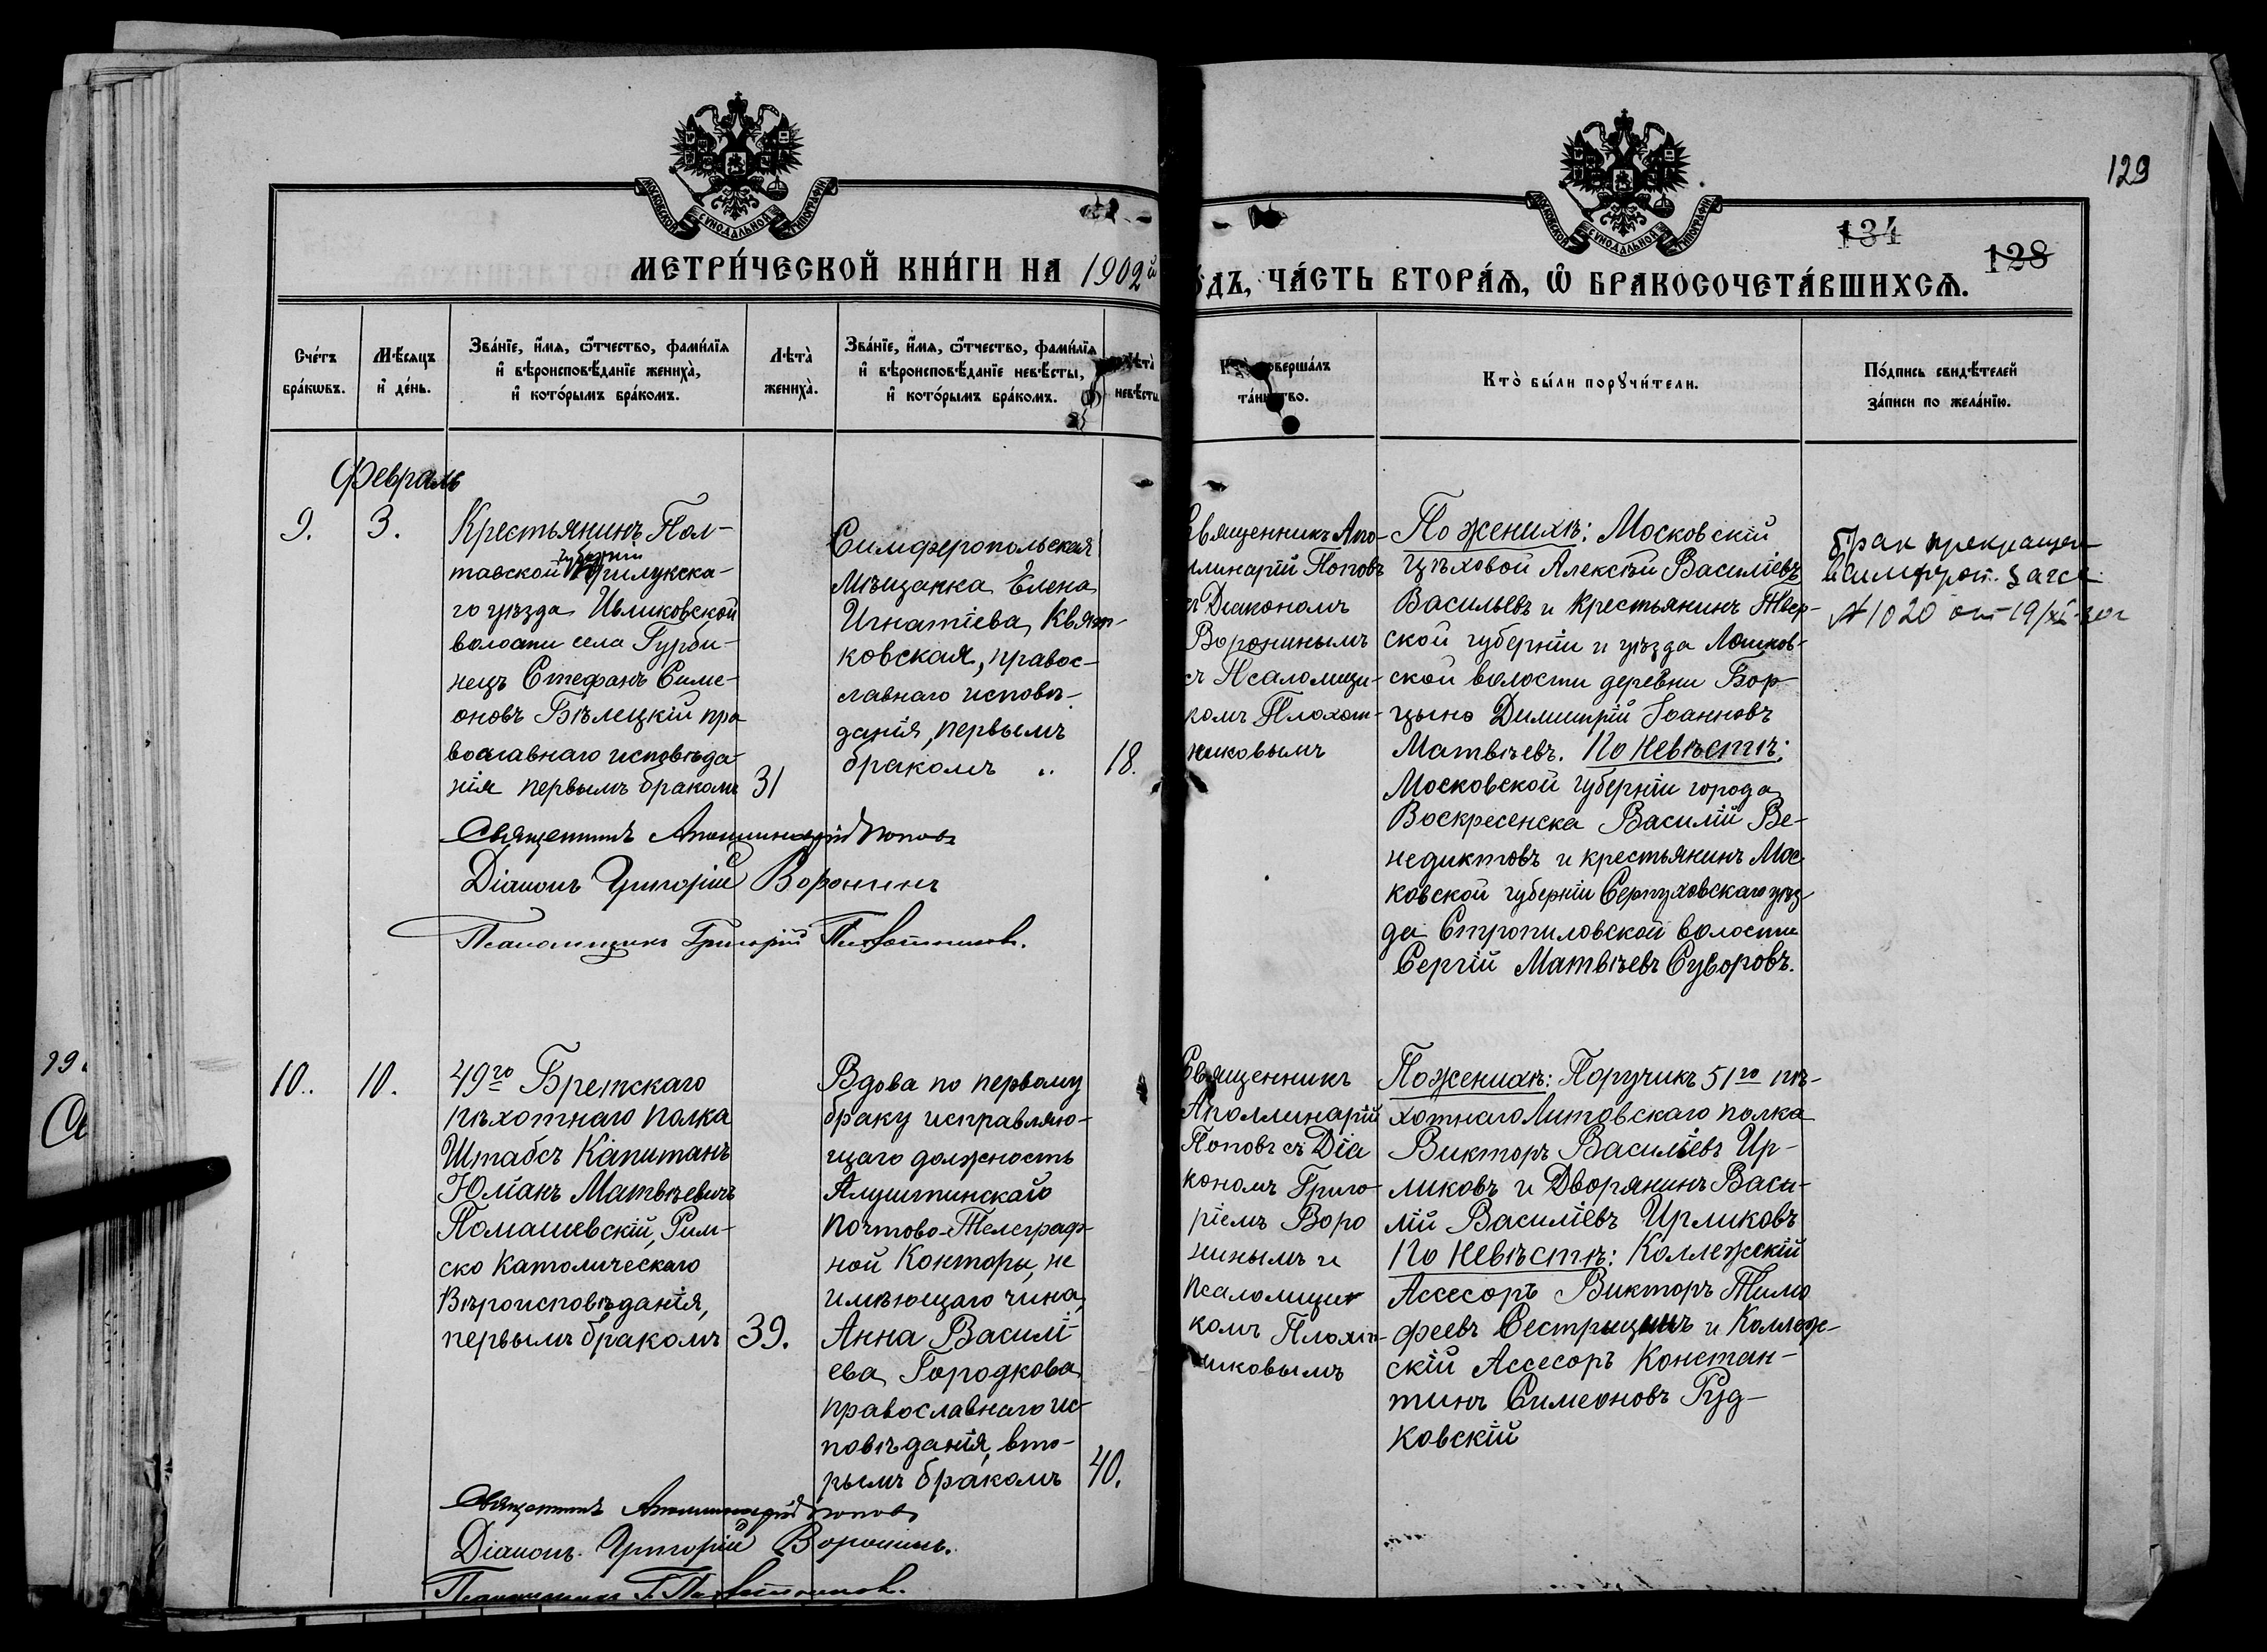 129
134
128
МОСКОВСКОЙ СѴНОДАЛЬНОЙ ТИПОГРАФІИ
МОСКОВСКОЙ СѴНОДАЛЬНОЙ ТИПОГРАФІИ
МЕТРИ́ЧЕСКОЙ КНИ́ГИ НА 1902й
О́ДЪ, ЧА́СТЬ ВТОРА́Ѧ, Ѽ БРАКОСОЧЕТА́ВШИХСѦ.
Сче́тъ
бра́кѡвъ.
Мѣ́сяцъ
и҆ де́нь.
Зва́нїе, и҆́мѧ, ѻ҆́тчество, фами́лїѧ
и҆ вѣроисповѣ́данїе женихà,
и҆ кото́рымъ бра́комъ.
Лѣтà
женихà.
Зва́нїе, и҆́мѧ, ѻ҆́тчество, фами́лїѧ
и҆ вѣроисповѣ́данїе невѣ́сты,
и҆ кото́рымъ бра́комъ.
Лѣтà
невѣ́сты
Кто̀ соверша́лъ
та́инство.
Кто̀ бы́ли порꙋчи́тели.
По́дпись свидѣ́телей
за́писи по жела́нїю.
Февраль
9.
3.
Крестьянинъ Пол-
губерніи
тавской Прилукска-
го уѣзда Ивликовской
волости села Гурби-
нецъ Стефанъ Симе-
оновъ Бѣлецкій пра
вославнаго исповѣда
нія первымъ бракомъ
31
Симферопольская
Мѣщанка Елена
Игнатіева Квят-
ковская, правос-
лавнаго исповѣ-
данія, первымъ
бракомъ „
18.
Священникъ Апо-
линарій Поповъ
съ Діакономъ
Воронинымъ
съ Псаломщи-
комъ Плохот-
никовымъ
По женихѣ: Московскій
цѣховой Алексѣй Василіевъ
Васильевъ и Крестьянинъ Твер-
ской губерніи и уѣзда
ской волости деревни Бор-
цыно Димитрій Іоанновъ
Матвѣевъ. По невѣстѣ:
Московской губерніи города
Воскресенска Василій Ве-
недиктовъ и крестьянинъ Мос-
ковской губерніи Серпуховскаго уѣз-
да Стропиловской волости
Сергій Матвѣевъ Суворовъ.
брак прекращен
в Симфероп. загсе
№ 1020 от 19/XI-30г
Священникъ Аполлинарій Поповъ
Діаконъ Григорій Воронинъ
Псаломщикъ Григорій Плохотниковъ.
10.
10.
49го Брестскаго
пѣхотнаго полка
Штабсъ Капитанъ
Юліанъ Матвѣевичъ
Помашевскій, Рим-
ско Католическаго
Вѣроисповѣданія,
первымъ бракомъ
39.
Вдова по первому
браку исправляю-
щаго должность
Алуштинскаго
почтово-Телеграф-
ной Конторы, не
имѣющаго чина,
Анна Василі-
ева Городкова
православнаго ис-
повѣданія, вто-
рымъ бракомъ
40.
Священникъ
Аполлинарій
Поповъ съ Діа
кономъ Григо-
ріемъ Воро
нинымъ и
псаломщи
комъ Плохот-
никовымъ
По женихѣ: Поручикъ 51го пѣ-
хотнаго Литовскаго полка
Викторъ Василіевъ Ир-
ликовъ и Дворянинъ Васи-
лій Василіевъ Ирликовъ
По невѣстѣ: Коллежскій
Ассесоръ Викторъ Тимо
феевъ Сестрицынъ и Коллеж-
скій Ассесоръ Констан-
тинъ Симеоновъ Руд-
ковскій
Священникъ Аполлинарій Поповъ
Діаконъ Григорій Воронинъ.
Псаломщикъ Г. Плохотниковъ.